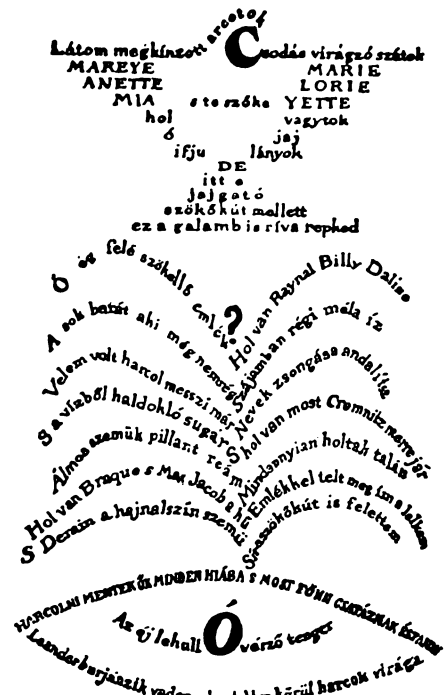 Látom megkínzott arcotok Csodás virágzó szátok
MAREYE MARIE
ANETTE LORIE
MIA s te szőke YETTE
hol vagytok
ó jaj
ifju lányok
DE
itt e
jajgató
szökőkút mellett
ez a galamb is ríva repked
Ó ég felé szökellő emlék
A sok barát aki még nemrég
Velem volt harcol messzi már
S a vízből haldokló sugár
Álmos szemük pillant reám
Hol van Braque s Max Jacob a hű
S Derain a hajnalszín szemű
?
Hol van Raynal Billy Dalize
Szájamban régi méla íz
Nevek zsongása andalítva
S hol van most Cremnitz merre jár
Mindannyian holtak talán
Emlékkel telt meg ím a lelkem
Sír a szökőkút is felettem
HARCOLNI MENTEK ŐK MINDEN HIÁBA S MOST FÖNN CSATÁZNAK
Az Éj lehull Ó vérző tenger
Leander burjánzik körül harcok virága